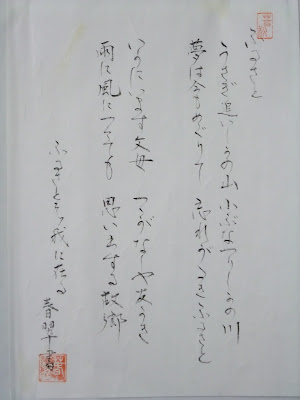 ふるさと
うさぎ追いしかの山 小ぶなつりしかの川
夢は今もめぐりて 忘れがたきふるさと
いかにいます父母 つゝがなしや友がき
雨に風につけても 思い出ずる故郷
ふるさとは我に在る
春翠書